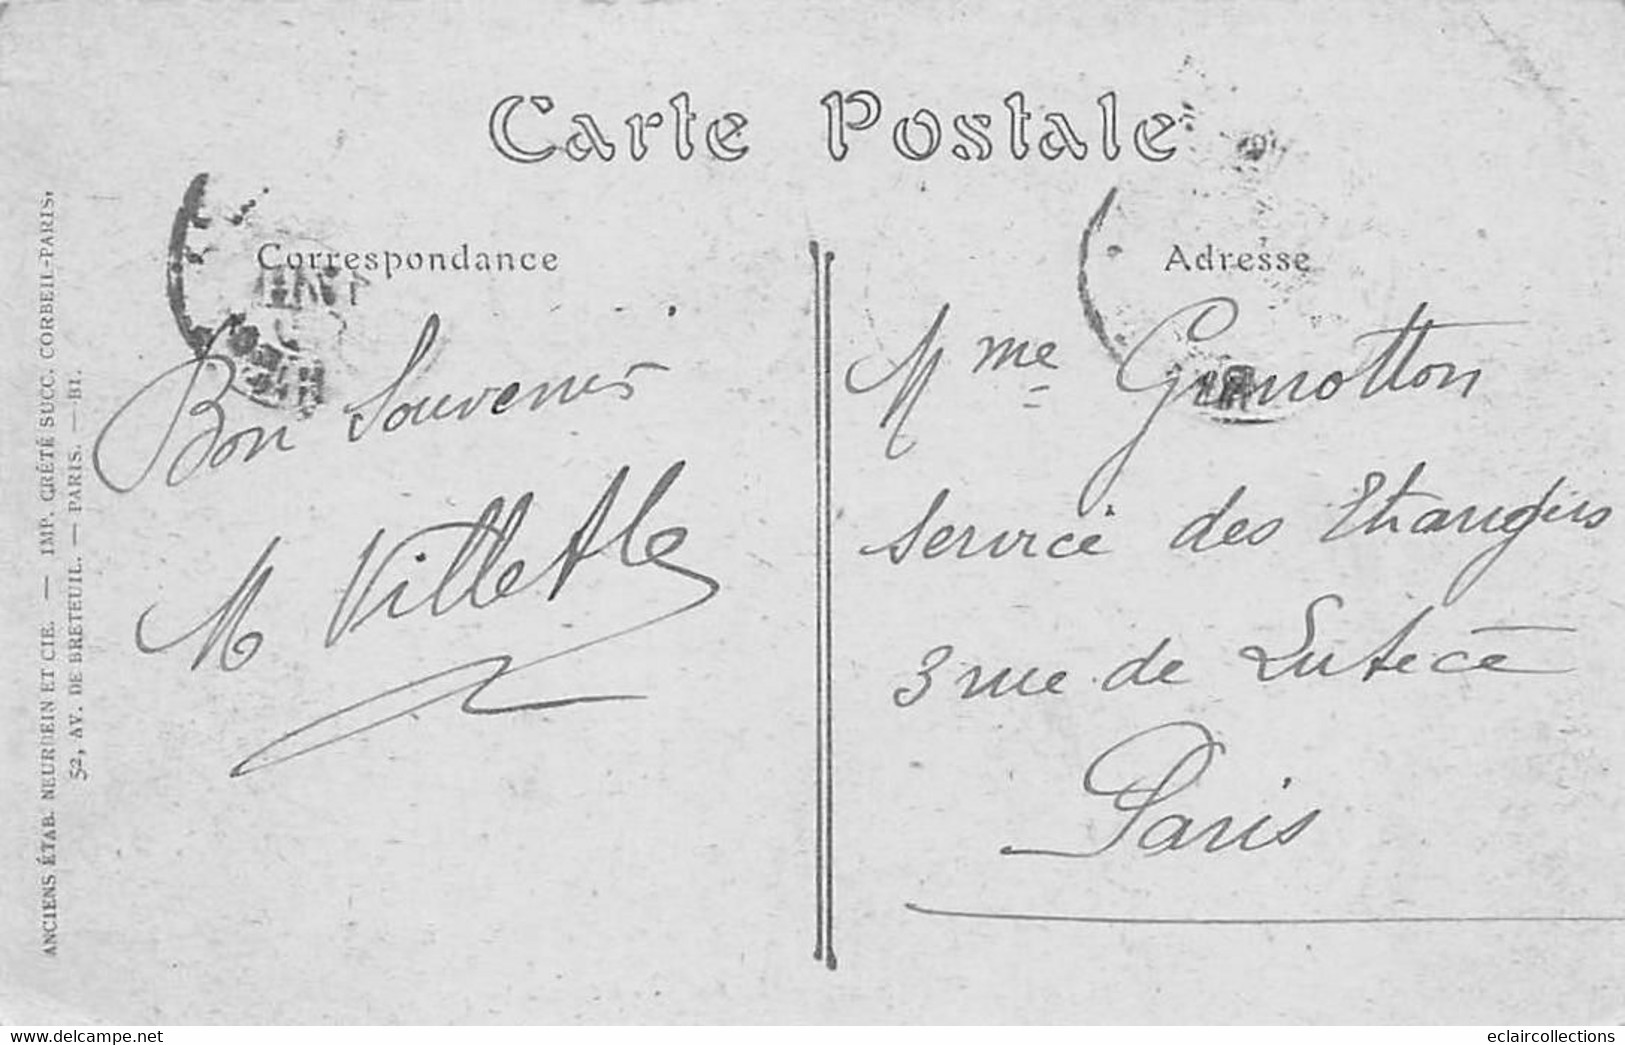 Carte Postale
Correspondance
Bon Souvenir
M
Adresse
Mme
Service des Etrangers
3 rue de Lutèce
Paris
ANCIENS ÉTAB. NEURDEIN ET CIE. — IMP. CRÉTÉ SUCC. CORBEIL-PARIS.
52, AV. DE BRETEUIL. — PARIS. — BI.
www.delcampe.net
eclaircollections